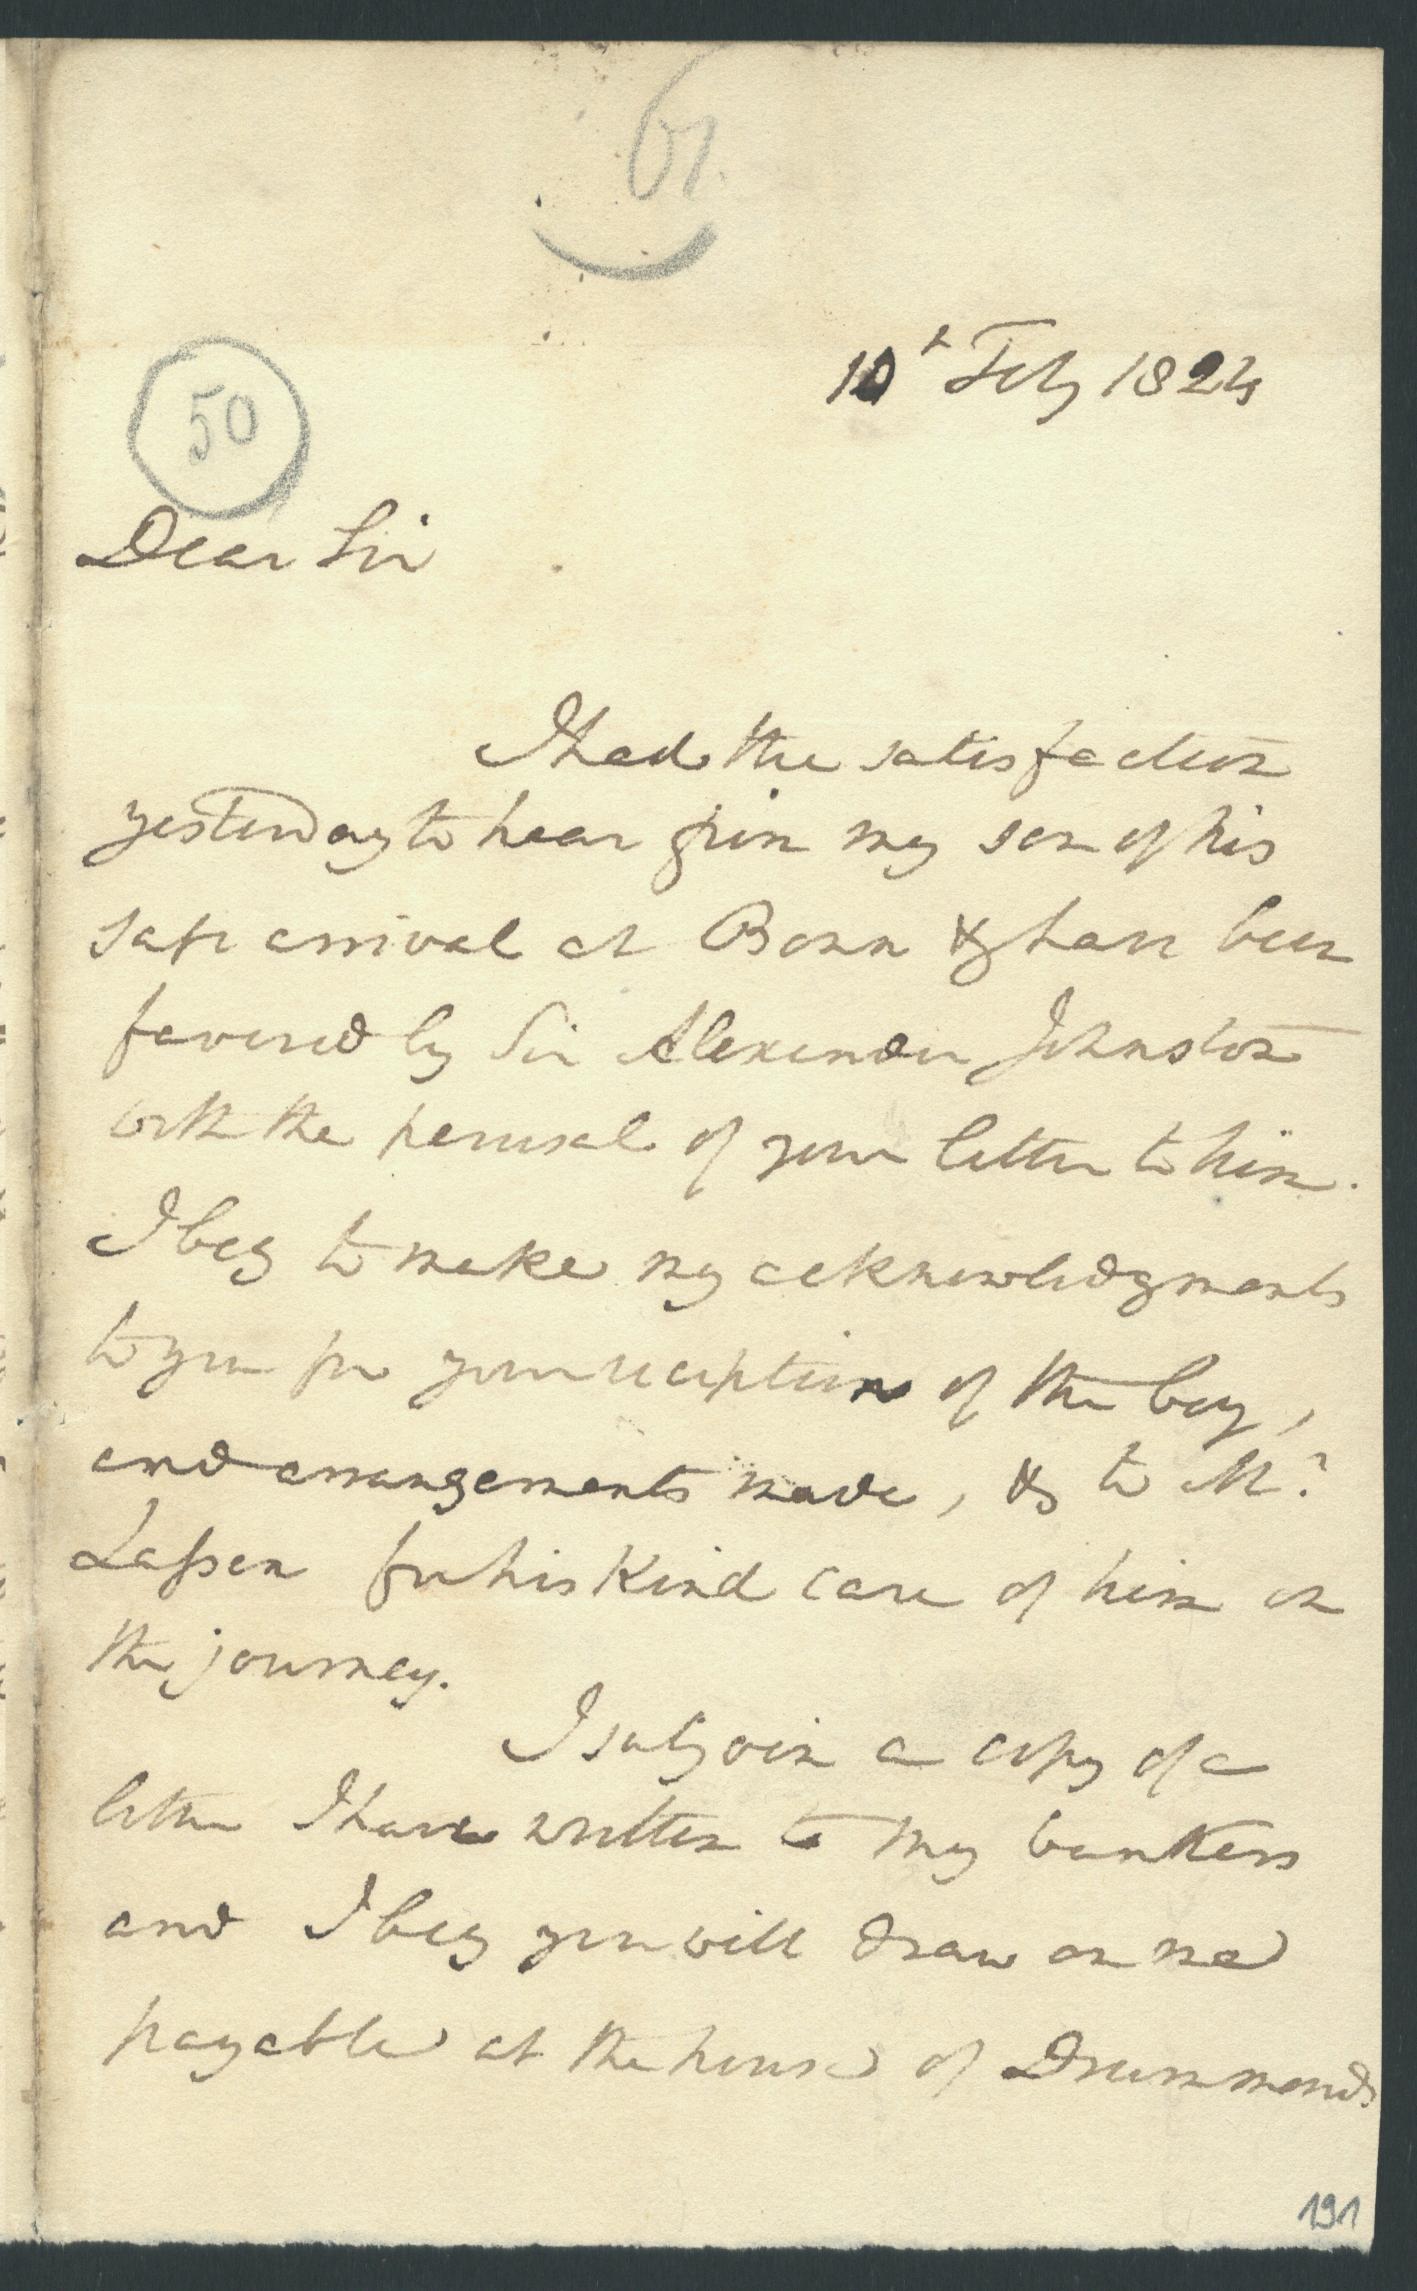 10th Feby 1824
50
Dear Sir
I had the satisfaction
yesterday to hear from my son of his
safe arrival at Bonn & have been
favored by Sir Alexander Johnston
with the perusal of your letter to him.
I beg to make my acknowledgments
to you for your reception of the boy,
and arrangements made, & to Mr.
Laſsen for his kind care of him on
the journey.
I subjoin a copy of a
letter I have written to my bankers
and I beg you will draw on me
payable at the house of Drummonds
191